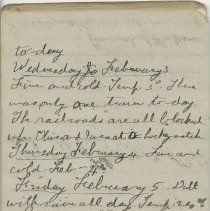 to-day
Wednesday February 3
Fine and cold Temp. 5° There
was only one train to-day.
The railroads are all blocked
up. Olive and I was at hockey match.
Thursday February 4. Fine and
cold
Friday February 5. Dull
with rain all day. Temp. 24°